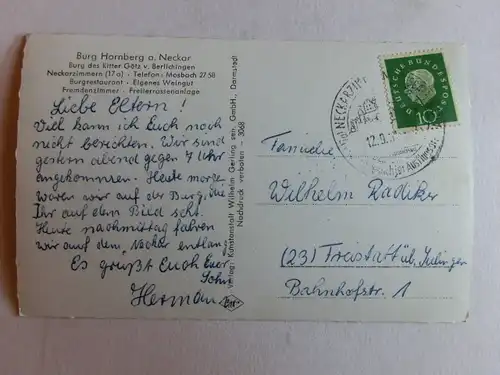 Burg Hornberg a. Neckar
Burg des Ritter Götz v. Berlichingen
Neckarzimmern (17a) · Telefon: Mosbach 2758
Burgrestaurant · Eigenes Weingut
Fremdenzimmer · Freiterrassenanlage
Liebe Eltern!
Viel kann ich Euch noch
nicht berichten. Wir sind
gestern abend gegen 7 Uhr
angekommen. Heute morgen
waren wir auf der Burg, die
Ihr auf dem Bild seht.
Heute nachmittag fahren
wir auf dem entlang
Es grüßt Euch Euer
Sohn
Herman
Verlag: Kunstanstalt Wilhelm Gerling sen. GmbH., Darmstadt
Nachdruck verboten - 3068
NECKARZIM
12.9.5
DEUTSCHE BUNDESPOST
10
Familie
Wilhelm Radiker
(23) Freistatt üb.
Bahnhofstr. 1